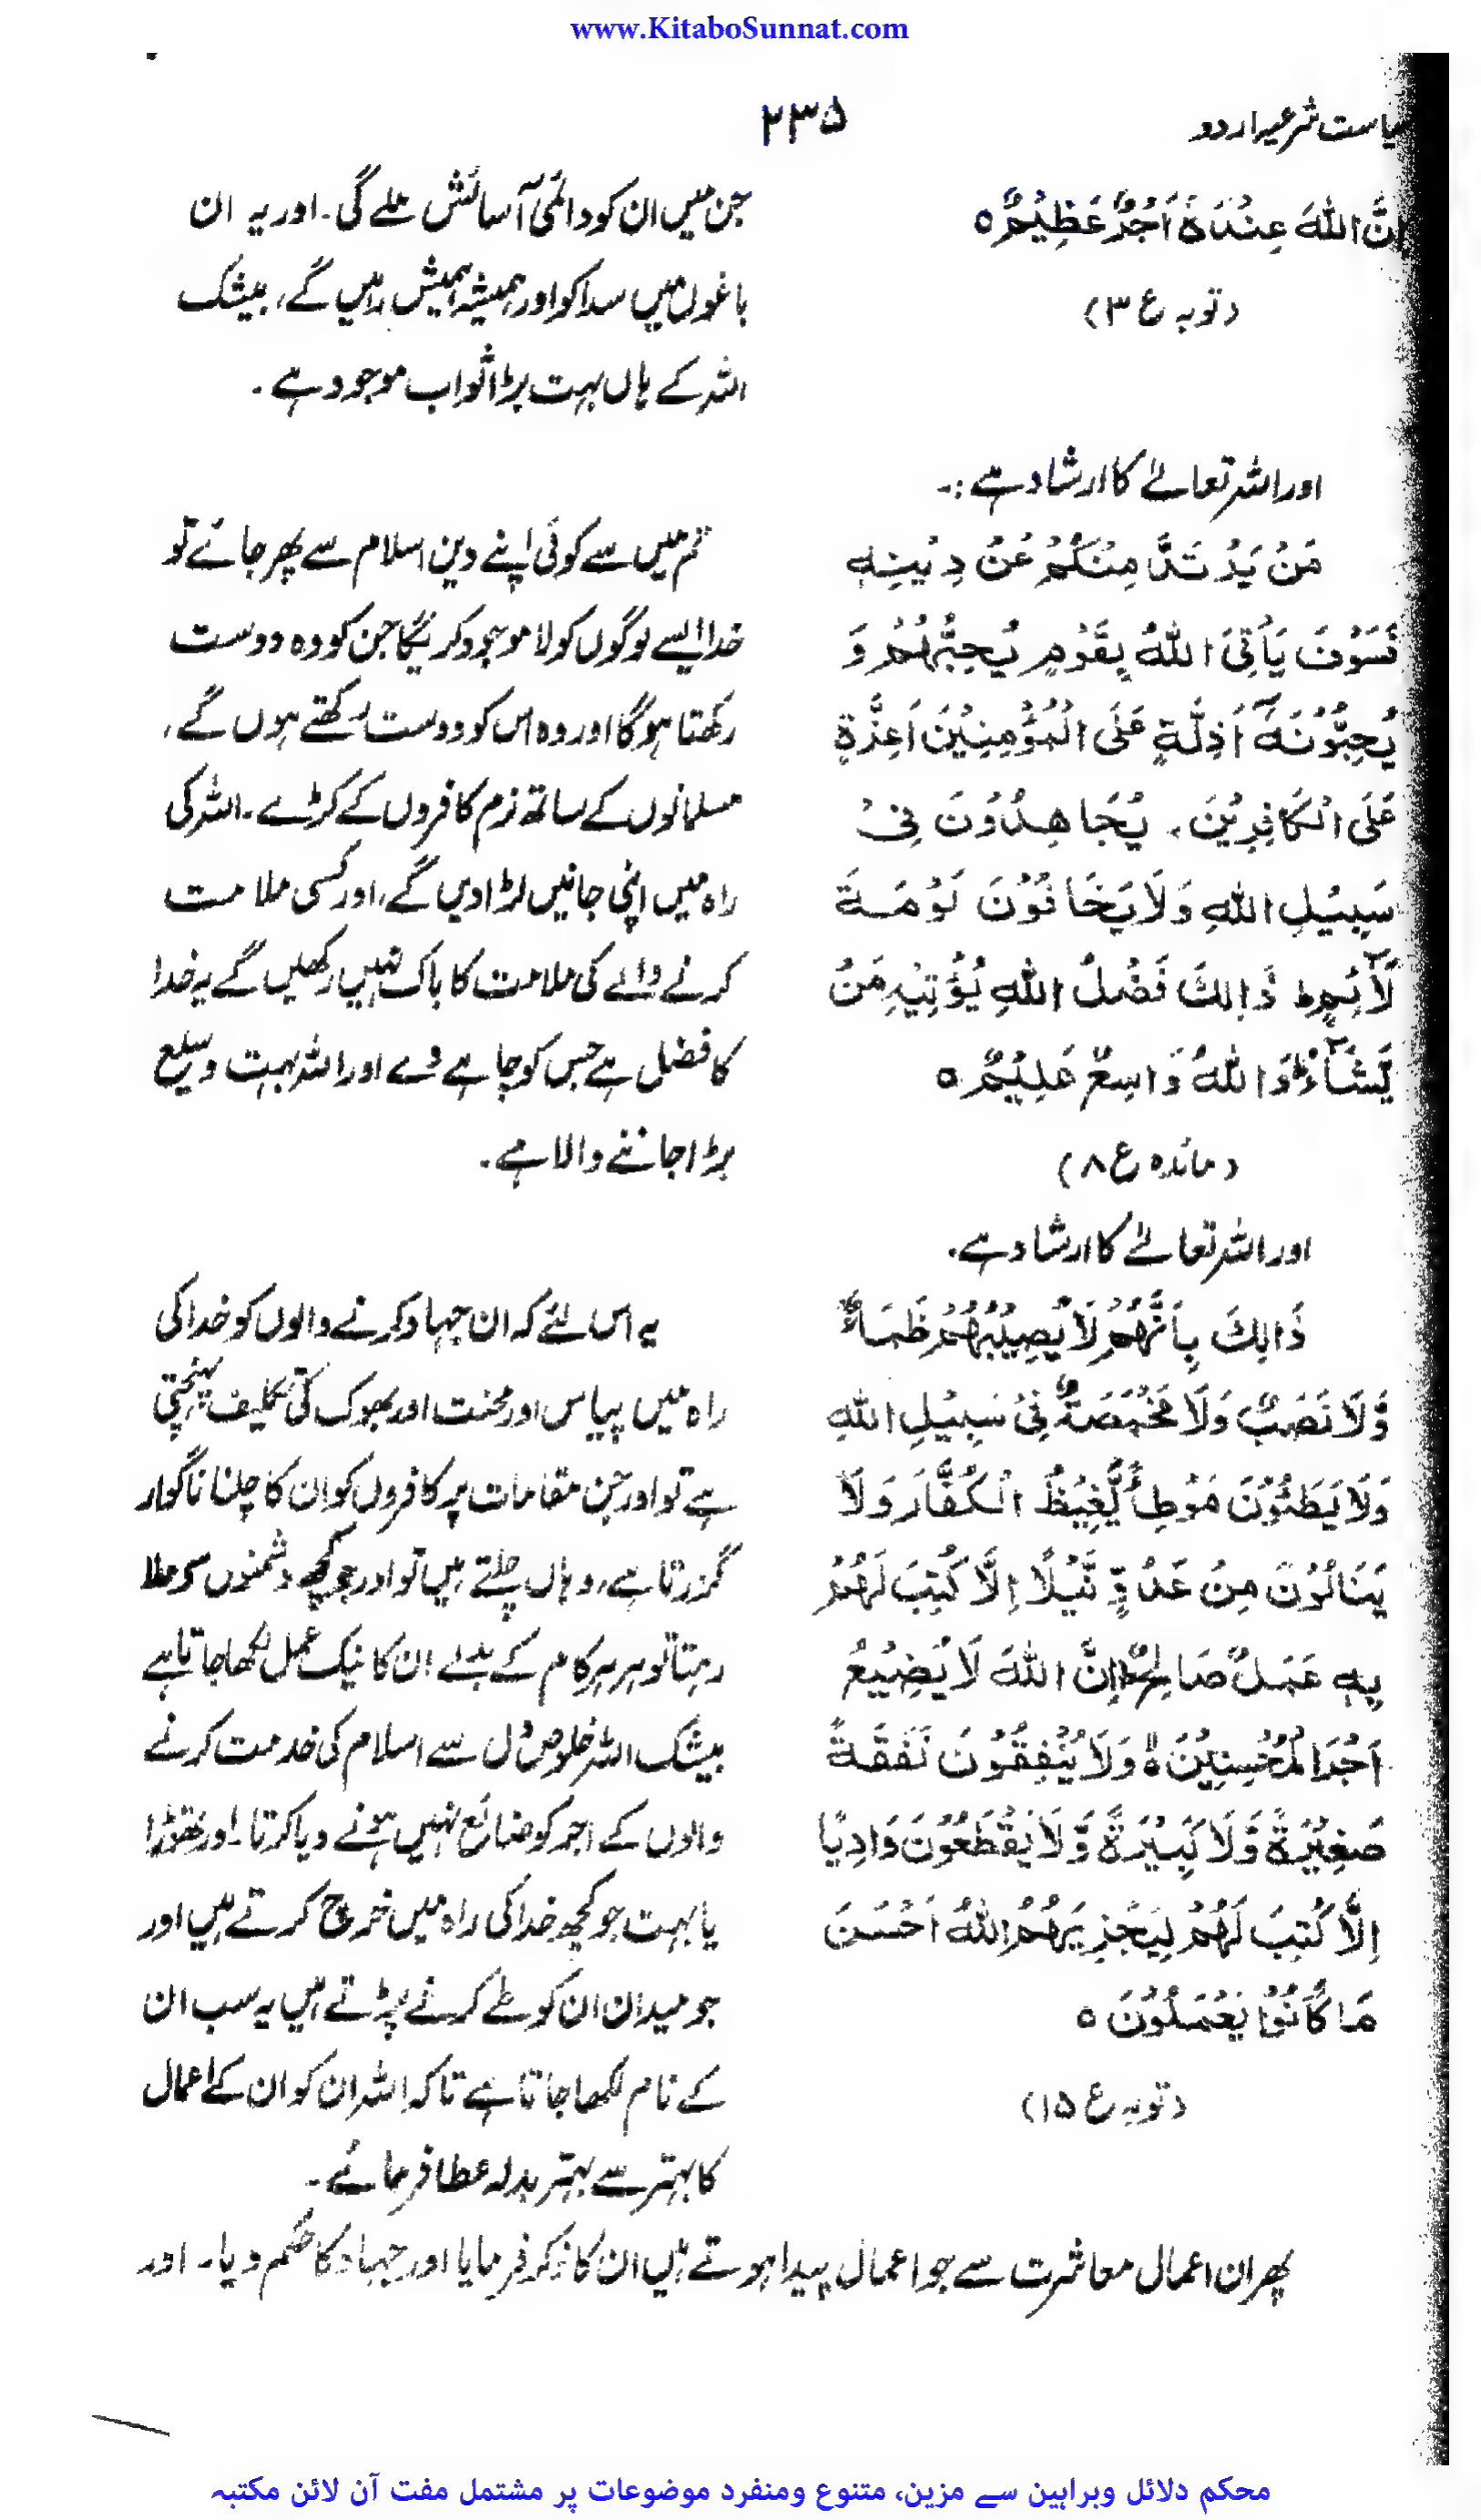 www.KitaboSunnat.com
سیاست شرعیہ اردو
۲۳۵
اِنَّ اللّٰہَ عِنْدَہٗ اَجْرٌ عَظِیْمٌ ہ
(توبہ ع ۳)
جن میں ان کو دائمی آسائش ملے گی۔ اور یہ ان
باغوں میں سدا کو اور ہمیشہ ہمیش رہیں گے، بیشک
اللہ کے ہاں بہت بڑا ثواب موجود ہے۔
اور اللہ تعالےٰ کا ارشاد ہے:۔
مَنْ یَرْتَدَّ مِنْکُمْ عَنْ دِیْنِہٖ
فَسَوْفَ یَأْتِی اللّٰہُ بِقَوْمٍ یُحِبُّہُمْ وَ
یُحِبُّوْنَہٗٓ اَذِلَّۃٍ عَلَی الْمُؤْمِنِیْنَ اَعِزَّۃٍ
عَلَی الْکَافِرِیْنَ، یُجَاہِدُوْنَ فِیْ
سَبِیْلِ اللّٰہِ وَلَا یَخَافُوْنَ لَوْمَۃَ
لَآئِمٍ ط ذَالِکَ فَضْلُ اللّٰہِ یُؤْتِیْہِ مَنْ
یَّشَآءُ ط وَاللّٰہُ وَاسِعٌ عَلِیْمٌ ہ
(مائدہ ع ۸)
تم میں سے کوئی اپنے دین اسلام سے پھر جائے تو
خدا ایسے لوگوں کو لا موجود کریگا جن کو وہ دوست
رکھتا ہوگا اور وہ اس کو دوست رکھتے ہوں گے،
مسلمانوں کے ساتھ نرم کافروں کے کڑے۔ اللہ کی
راہ میں اپنی جانیں لڑا دیں گے، اور کسی ملامت
کرنے والے کی ملامت کا باک نہیں رکھیں گے یہ خدا
کا فضل ہے جس کو چاہے دے اور اللہ بہت وسیع
بڑا جاننے والا ہے۔
اور اللہ تعالےٰ کا ارشاد ہے۔
ذَالِکَ بِاَنَّہُمْ لَا یُصِیْبُہُمْ ظَمَاءٌ
وَّلَا نَصَبٌ وَلَا مَخْمَصَۃٌ فِیْ سَبِیْلِ اللّٰہِ
وَلَا یَطَئُوْنَ مَوْطِأً یَّغِیْظُ الْکُفَّارَ وَلَا
یَنَالُوْنَ مِنْ عَدُوٍّ نَّیْلًا اِلَّا کُتِبَ لَہُمْ
بِہٖ عَمَلٌ صَالِحٌ ط اِنَّ اللّٰہَ لَا یُضِیْعُ
اَجْرَ الْمُحْسِنِیْنَ ہ وَلَا یُنْفِقُوْنَ نَفَقَۃً
صَغِیْرَۃً وَّلَا کَبِیْرَۃً وَّلَا یَقْطَعُوْنَ وَادِیًا
اِلَّا کُتِبَ لَہُمْ لِیَجْزِیَہُمُ اللّٰہُ اَحْسَنَ
مَا کَانُوْا یَعْمَلُوْنَ ہ
(توبہ ع ۱۵)
یہ اس لئے کہ ان جہاد کرنے والوں کو خدا کی
راہ میں پیاس اور محنت اور بھوک کی تکلیف پہنچتی
ہے تو اور جن مقامات پر کافروں کو ان کا چلنا ناگوار
گزرتا ہے، وہاں چلتے ہیں تو اور جو کچھ دشمنوں کو ملا
رہتا تو ہر ہر کام کے بدلے ان کا نیک عمل لکھا جاتا ہے
بیشک اللہ خلوص دل سے اسلام کی خدمت کرنے
والوں کے اجر کو ضائع نہیں ہونے دیا کرتا۔ اور تھوڑا
یا بہت جو کچھ خدا کی راہ میں خرچ کرتے ہیں اور
جو میدان ان کو طے کرنے پڑتے ہیں یہ سب ان
کے نام لکھا جاتا ہے تاکہ اللہ ان کو ان کے اعمال
کا بہتر سے بہتر بدلہ عطا فرمائے۔
پھر ان اعمال معاشرت سے جو اعمال پیدا ہوتے ہیں ان کا ذکر فرمایا اور جہاد کا حکم دیا۔ اور
محکم دلائل وبراہین سے مزین، متنوع ومنفرد موضوعات پر مشتمل مفت آن لائن مکتبہ